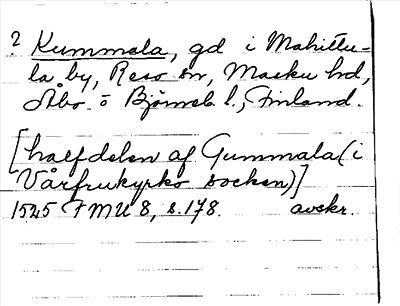 ? Kummala, gd i Mahittu-
la by, Reso sn, Masku hd,
Åbo o Björneb. l., Finland.
[halfdelen af Gummala (i
Vårfrukyrko socken)]
1545 FMU 8, s. 178. avskr.